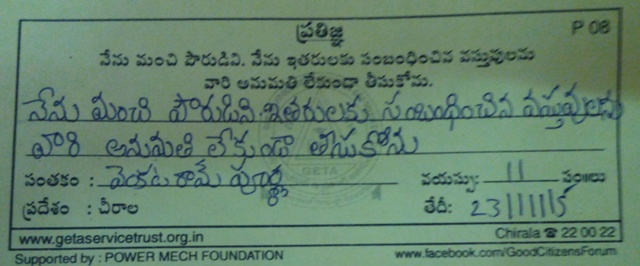 ప్రతిజ్ఞ P 08
నేను మంచి పౌరుడిని. నేను ఇతరులకు సంబంధించిన వస్తువులను
వారి అనుమతి లేకుండా తీసుకోను.
నేను మంచి పౌరుడిని ఇతరులకు సంబంధించిన వస్తువులను
వారి అనుమతి లేకుండా తీసుకోను
సంతకం : వయస్సు: 11 సం॥లు
ప్రదేశం : చీరాల తేదీ: 23/11/15
GETA
www.getaservicetrust.org.in Chirala ☎ 22 00 22
Supported by : POWER MECH FOUNDATION www.facebook.com/GoodCitizensForum